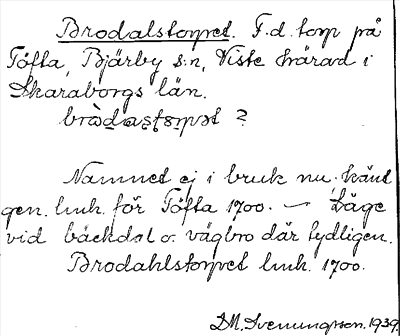 Brodalstorpet. F.d. torp på
Töfta, Bjärby s:n, Viste härad i
Skaraborgs län.
brò̀dastɔrpət ?
Namnet ej i bruk nu. Känt
gen. lmk. för Töfta 1700. — Läge
vid bäckdal o. vägbro där tydligen.
Brodahlstorpet lmk. 1700.
D.M. Svenungsson. 1939.